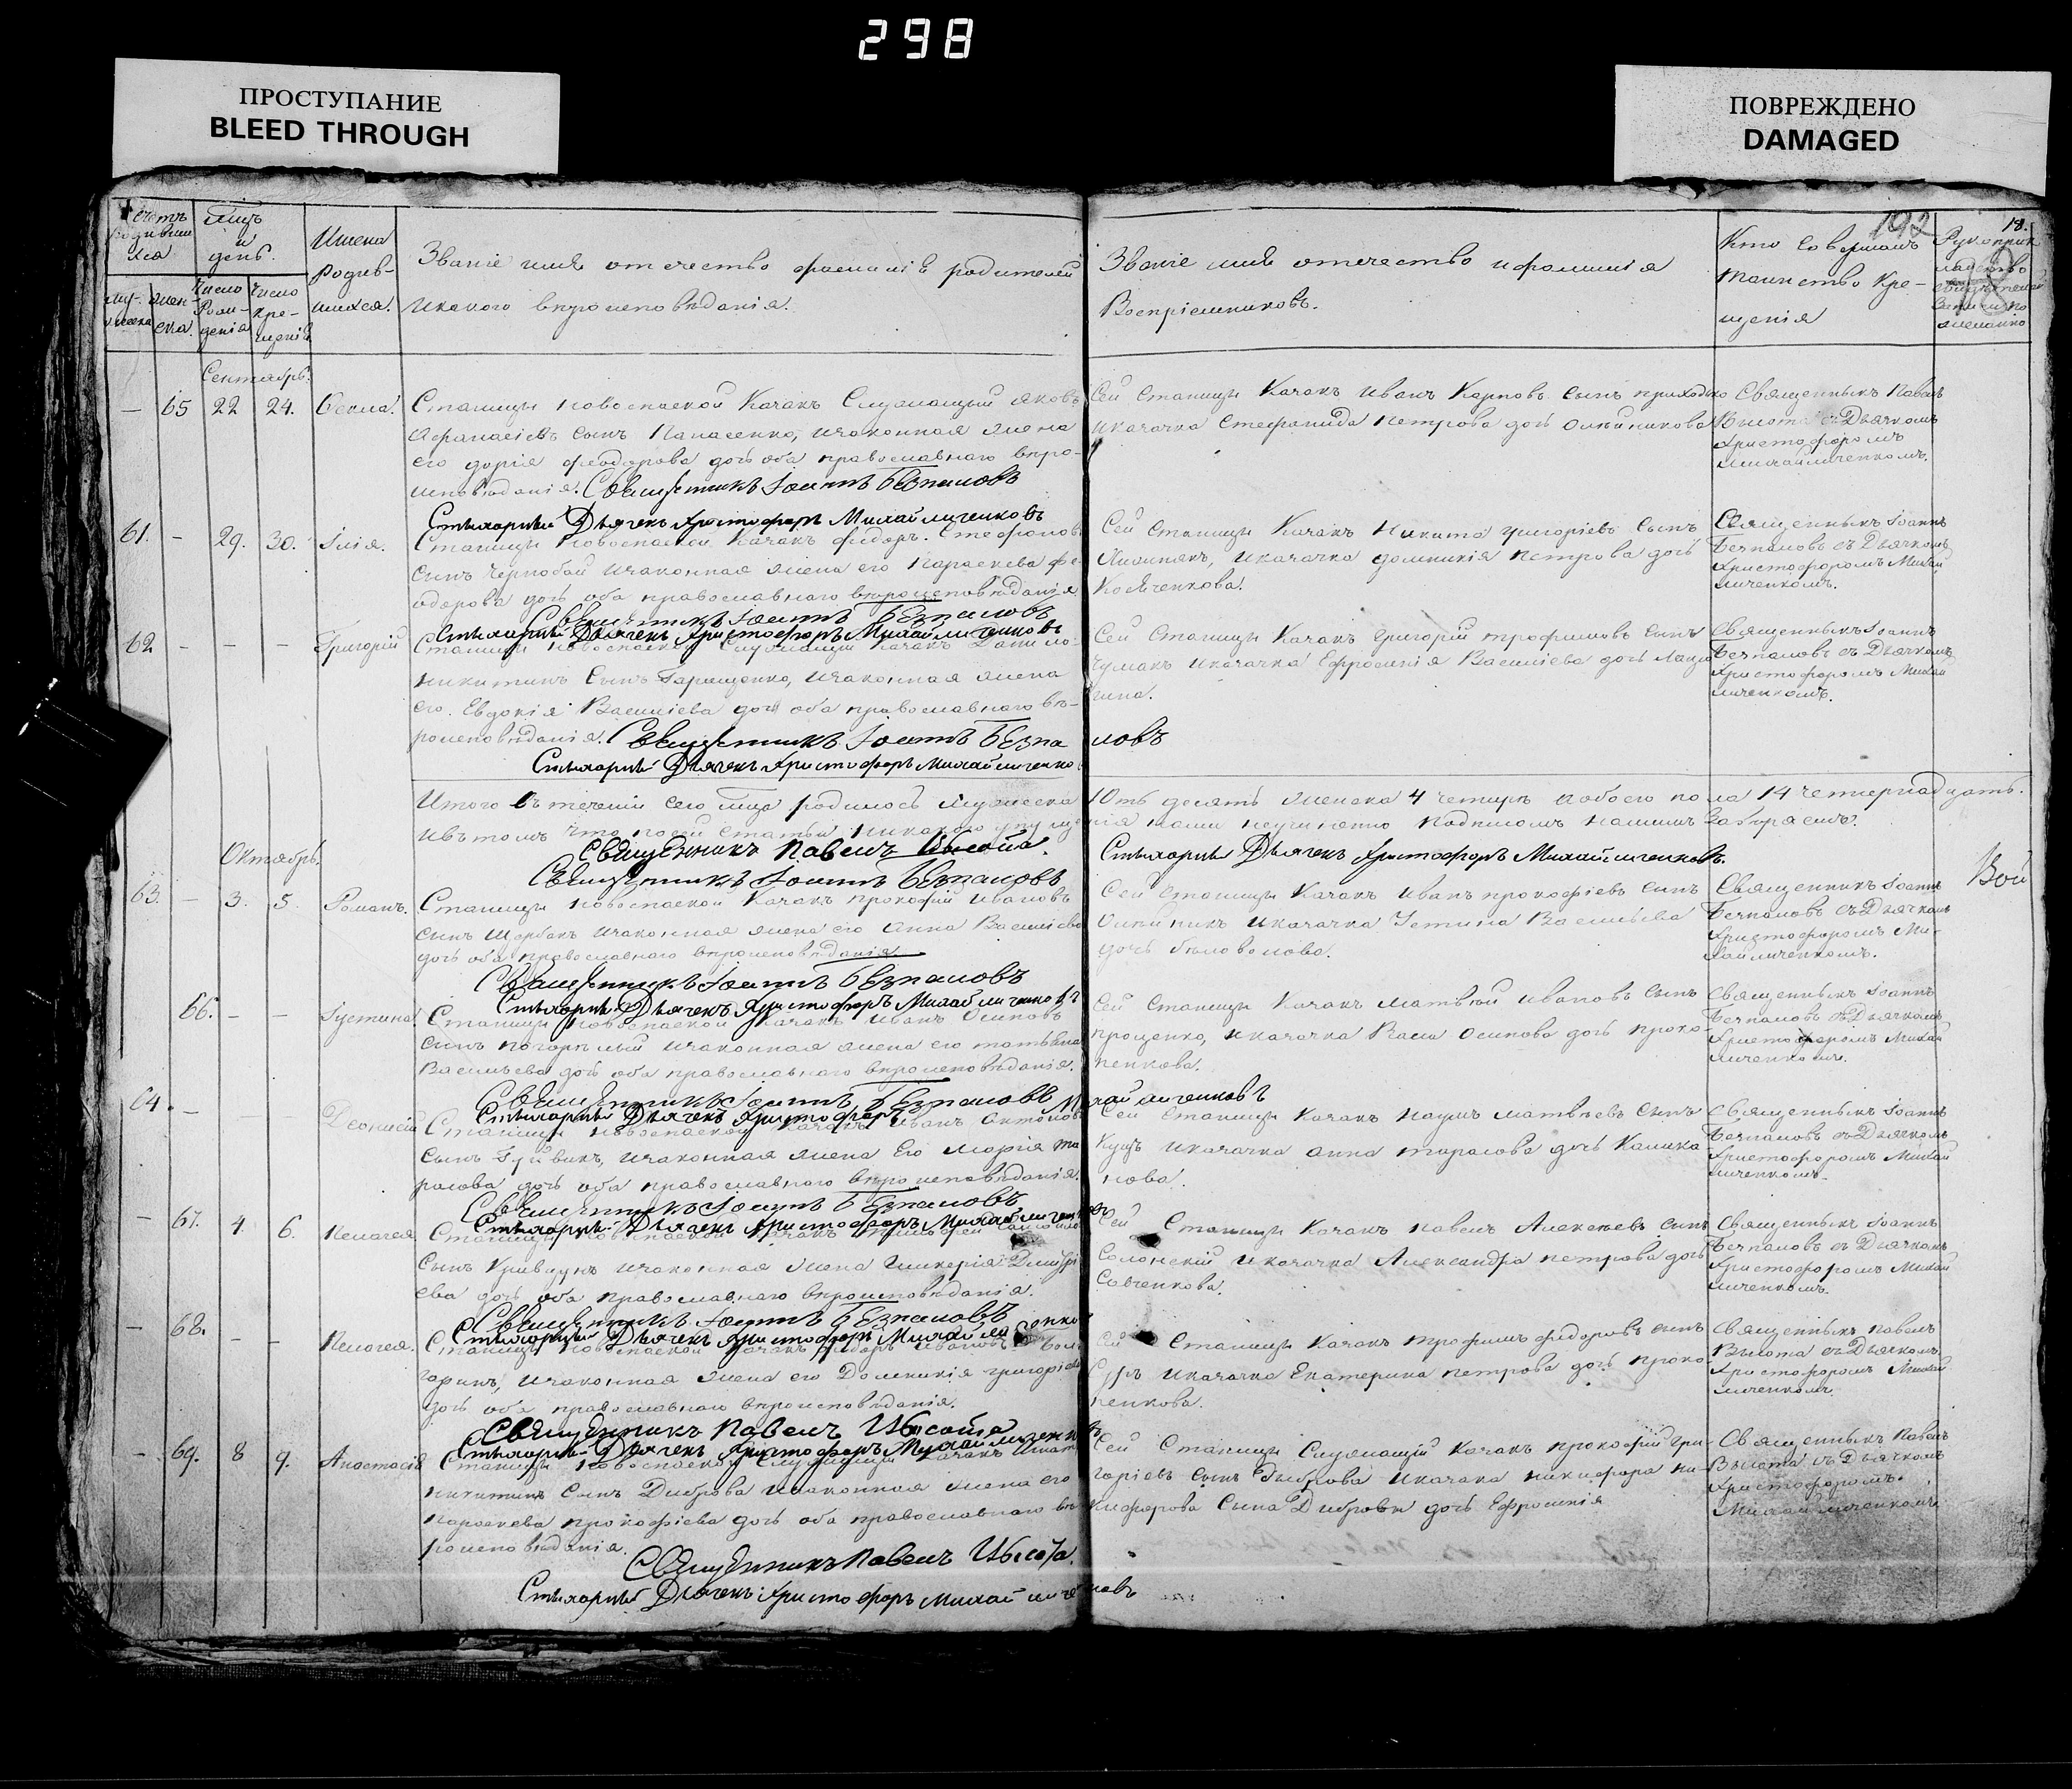 298
ПРОСТУПАНИЕ
BLEED THROUGH
ПОВРЕЖДЕНО
DAMAGED
192
18.
Счетъ родившихся
Мцъ и день.
Имена родившихся.
Званіе имя отечество фамилія родителей
и какого вѣроисповѣданія.
Званіе имя отечество и фамилія
Воспріемниковъ.
Кто совершалъ
таинство кре-
щенія
Число рожденія
Число крещенія
Сентябрь.
— 65 22 24. Ѳекла.
Станицы Новоспаской Казакъ Служащій Яковъ
Афанасіевъ сынъ Панасенко, и законная жена
его Дарія Феодорова дочь оба православнаго вѣро-
исповѣданія. Священникъ Іоаннъ Безпаловъ
Стихарный Дьячекъ Христофоръ Михайличенковъ
Сей Станицы Казакъ Иванъ Карповъ сынъ
и казачка Стефанида Петрова дочь Олейникова
Священникъ Павелъ
Высота съ Дьячкомъ
Христофоромъ
Михайличенкомъ.
61. - 29. 30. Илія.
Станицы Новоспаской Казакъ Федоръ Стефановъ
сынъ Чернобай и законная жена его Параскева Фе-
одорова дочь оба православнаго вѣроисповѣданія
Священникъ Іоаннъ Безпаловъ
Стихарный Дьячекъ Христофоръ Михайличенковъ
Сей Станицы Казакъ Никита Григоріевъ сынъ
и казачка Домникія Петрова дочь
Священникъ Іоаннъ
Безпаловъ съ Дьячкомъ
Христофоромъ Михай
личенкомъ.
62 - - - Григорій
Станицы Новоспаской Служащій Казакъ Данило
Никитинъ сынъ и законная жена
его Евдокія Василіева дочь оба православнаго вѣ-
роисповѣданія. Священникъ Іоаннъ Безпаловъ
Стихарный Дьячекъ Христофоръ Михайличенко
Сей Станицы Казакъ Григорій Трофимовъ сынъ
Чумакъ и казачка Ефросинія Василіева дочь
Священникъ Іоаннъ
Безпаловъ съ Дьячкомъ
Христофоромъ Михай
личенкомъ.
Итого въ теченіи сего мца родилось мужеска 10ть десять женска 4 четыре а обоего пола 14 четырнадцать.
и въ томъ что по сей статьи никакого упущенія нами неучинено подписомъ нашимъ
Священникъ Павелъ Высота.
Стихарный Дьячекъ Христофоръ Михайличенковъ.
Священникъ Іоаннъ Безпаловъ
Вой
Октябрь.
63. - 3. 5. Романъ.
Станицы Новоспаской Казакъ Прокофій Ивановъ
сынъ Щербакъ и законная жена его Анна Василіева
дочь оба православнаго вѣроисповѣданія
Священникъ Іоаннъ Безпаловъ
Стихарный Дьячекъ Христофоръ Михайличенковъ
Сей Станицы Казакъ Иванъ Прокофіевъ сынъ
Олейникъ и казачка Устина Василіева
дочь Бѣловолова.
Священникъ Іоаннъ
Безпаловъ съ Дьячкомъ
Христофоромъ Ми-
хайличенкомъ.
66. - - Іустина.
Станицы Новоспаской Казакъ Иванъ Осиповъ
сынъ Погорѣлый и законная жена его Татьяна
Васильева дочь оба православнаго вѣроисповѣданія.
Священникъ Іоаннъ Безпаловъ
Стихарный Дьячекъ Христофоръ Михайличенковъ
Сей Станицы Казакъ Матвій Ивановъ сынъ
Проценко, и казачка Васса Осипова дочь Проко-
пенкова.
Священникъ Іоаннъ
Безпаловъ съ Дьячкомъ
Христофоромъ Михай
личенкомъ.
64. - - - Діонисій
Станицы Новоспаской Казакъ Иванъ Антоновъ
сынъ Гуйвикъ, и законная жена его Марія Та
расова дочь оба православнаго вѣроисповѣданія.
Священникъ Іоаннъ Безпаловъ
Сей Станицы Казакъ Наумъ Матвѣевъ сынъ
Куцъ и казачка Анна Тарасова дочь Калика
нова.
Священникъ Іоаннъ
Безпаловъ съ Дьячкомъ
Христофоромъ Михай
личенкомъ.
— 67. 4. 6. Пелагея
Стихарный Дьячекъ Христофоръ Михайличенковъ
Станицы Новоспаской Казакъ
сынъ Кривцунъ и законная жена Гликерія Дмитрі
ева дочь оба православнаго вѣроисповѣданія.
Священникъ Іоаннъ Безпаловъ
Стихарный Дьячекъ Христофоръ Михайличенко
Сей Станицы Казакъ Павелъ Алексѣевъ сынъ
Солонскій и казачка Александра Петрова дочь
Савченкова.
Священникъ Іоаннъ
Безпаловъ съ Дьячкомъ
Христофоромъ Михай
личенкомъ.
— 68. - - Пелагея.
Станицы Новоспаской Казакъ Федоръ Ивановъ
и законная жена его Домникія Григоріева
дочь оба православнаго вѣроисповѣданія.
Священникъ Павелъ Высота
Стихарный Дьячекъ Христофоръ Михайличенковъ
Сей Станицы Казакъ Трофимъ Федоровъ сынъ
и казачка Екатерина Петрова дочь Проко-
пенкова.
Священникъ Павелъ
Высота съ Дьячкомъ
Христофоромъ Михай
личенкомъ.
- 69. 8 9. Анастасія
Станицы Новоспаской Служащій Казакъ Игнатъ
Никитинъ сынъ Диброва и законная жена его
Параскева Прокофіева дочь оба православнаго вѣ
роисповѣданія.
Священникъ Павелъ Высота.
Стихарный Дьячекъ Христофоръ Михайличенковъ
Сей Станицы Служащій Казакъ Прокофій Гри-
горіевъ сынъ Диброва и казака Никифора Ни-
кифорова сына Дибровы дочь Ефросинія
Священникъ Павелъ
Высота съ Дьячкомъ
Христофоромъ
Михайличенкомъ